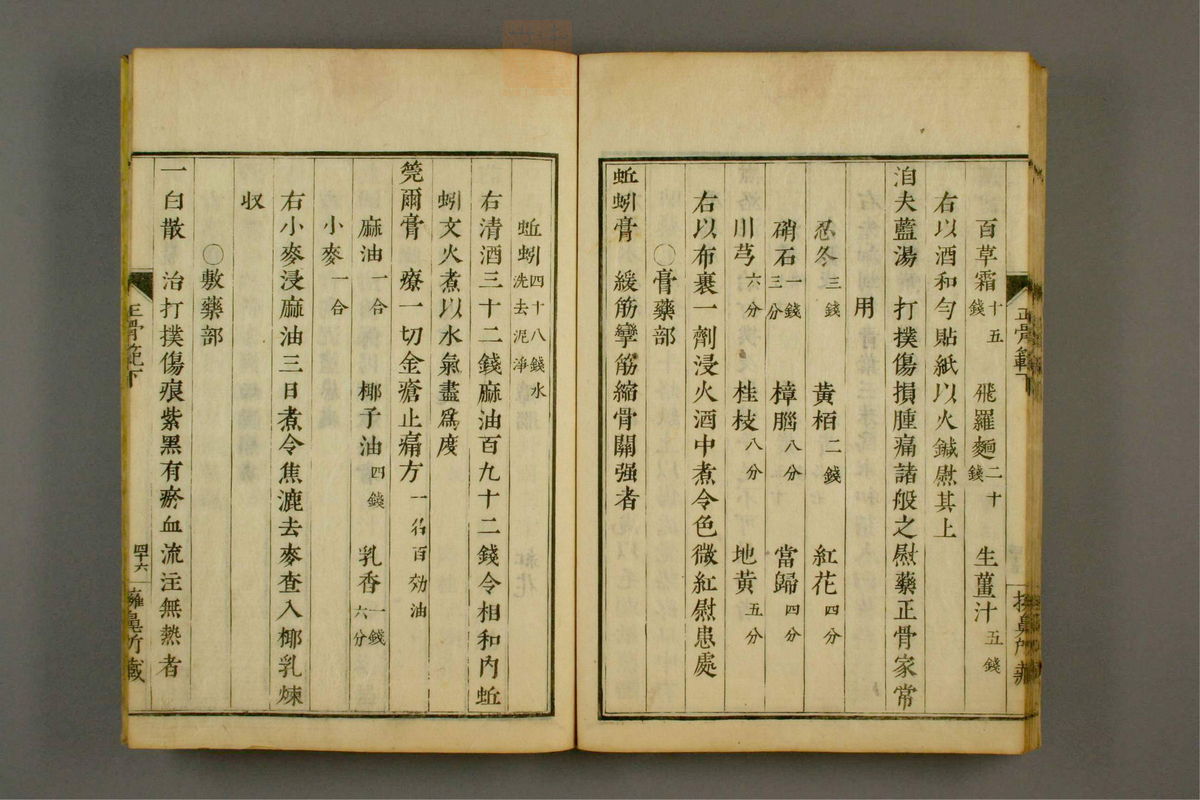 百草霜十五錢 飛羅麵二十錢 生薑汁五錢
右以酒和勻貼紙以火鍼慰其上
洎夫藍湯 打撲傷損腫痛諸般之慰藥正骨家常
用
忍冬三錢 黃栢二錢 紅花四分
硝石一錢三分 樟腦八分 當歸四分
川芎六分 桂枝八分 地黃五分
右以布裹一劑浸火酒中煮令色微紅慰患處
〇膏藥部
蚯蚓膏 緩筋攣筋縮骨關强者
蚯蚓四十八錢水洗去泥淨
右清酒三十二錢麻油百九十二錢令相和內蚯
蚓文火煮以水氣盡爲度
莞爾膏 療一切金瘡止痛方一名百効油
麻油一合 椰子油四錢 乳香一錢六分
小麥一合
右小麥浸麻油三日煮令焦漉去麥查入椰乳煉
収
〇敷藥部
一白散 治打撲傷痕紫黑有瘀血流注無熱者
正骨範下
四十六
擁鼻所藏